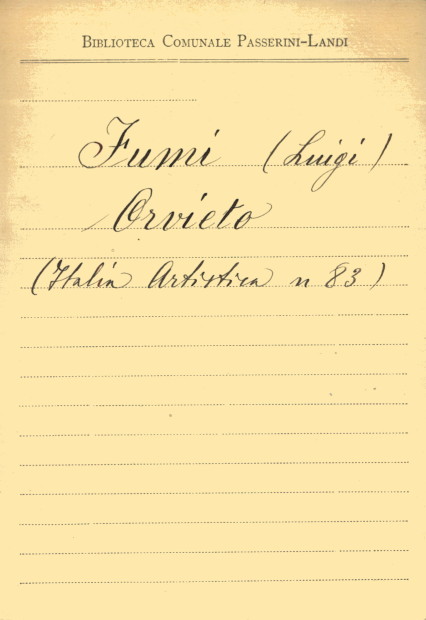 BIBLIOTECA COMUNALE PASSERINI-LANDI
Fumi (Luigi)
Orvieto
(Italia Artistica n 83)